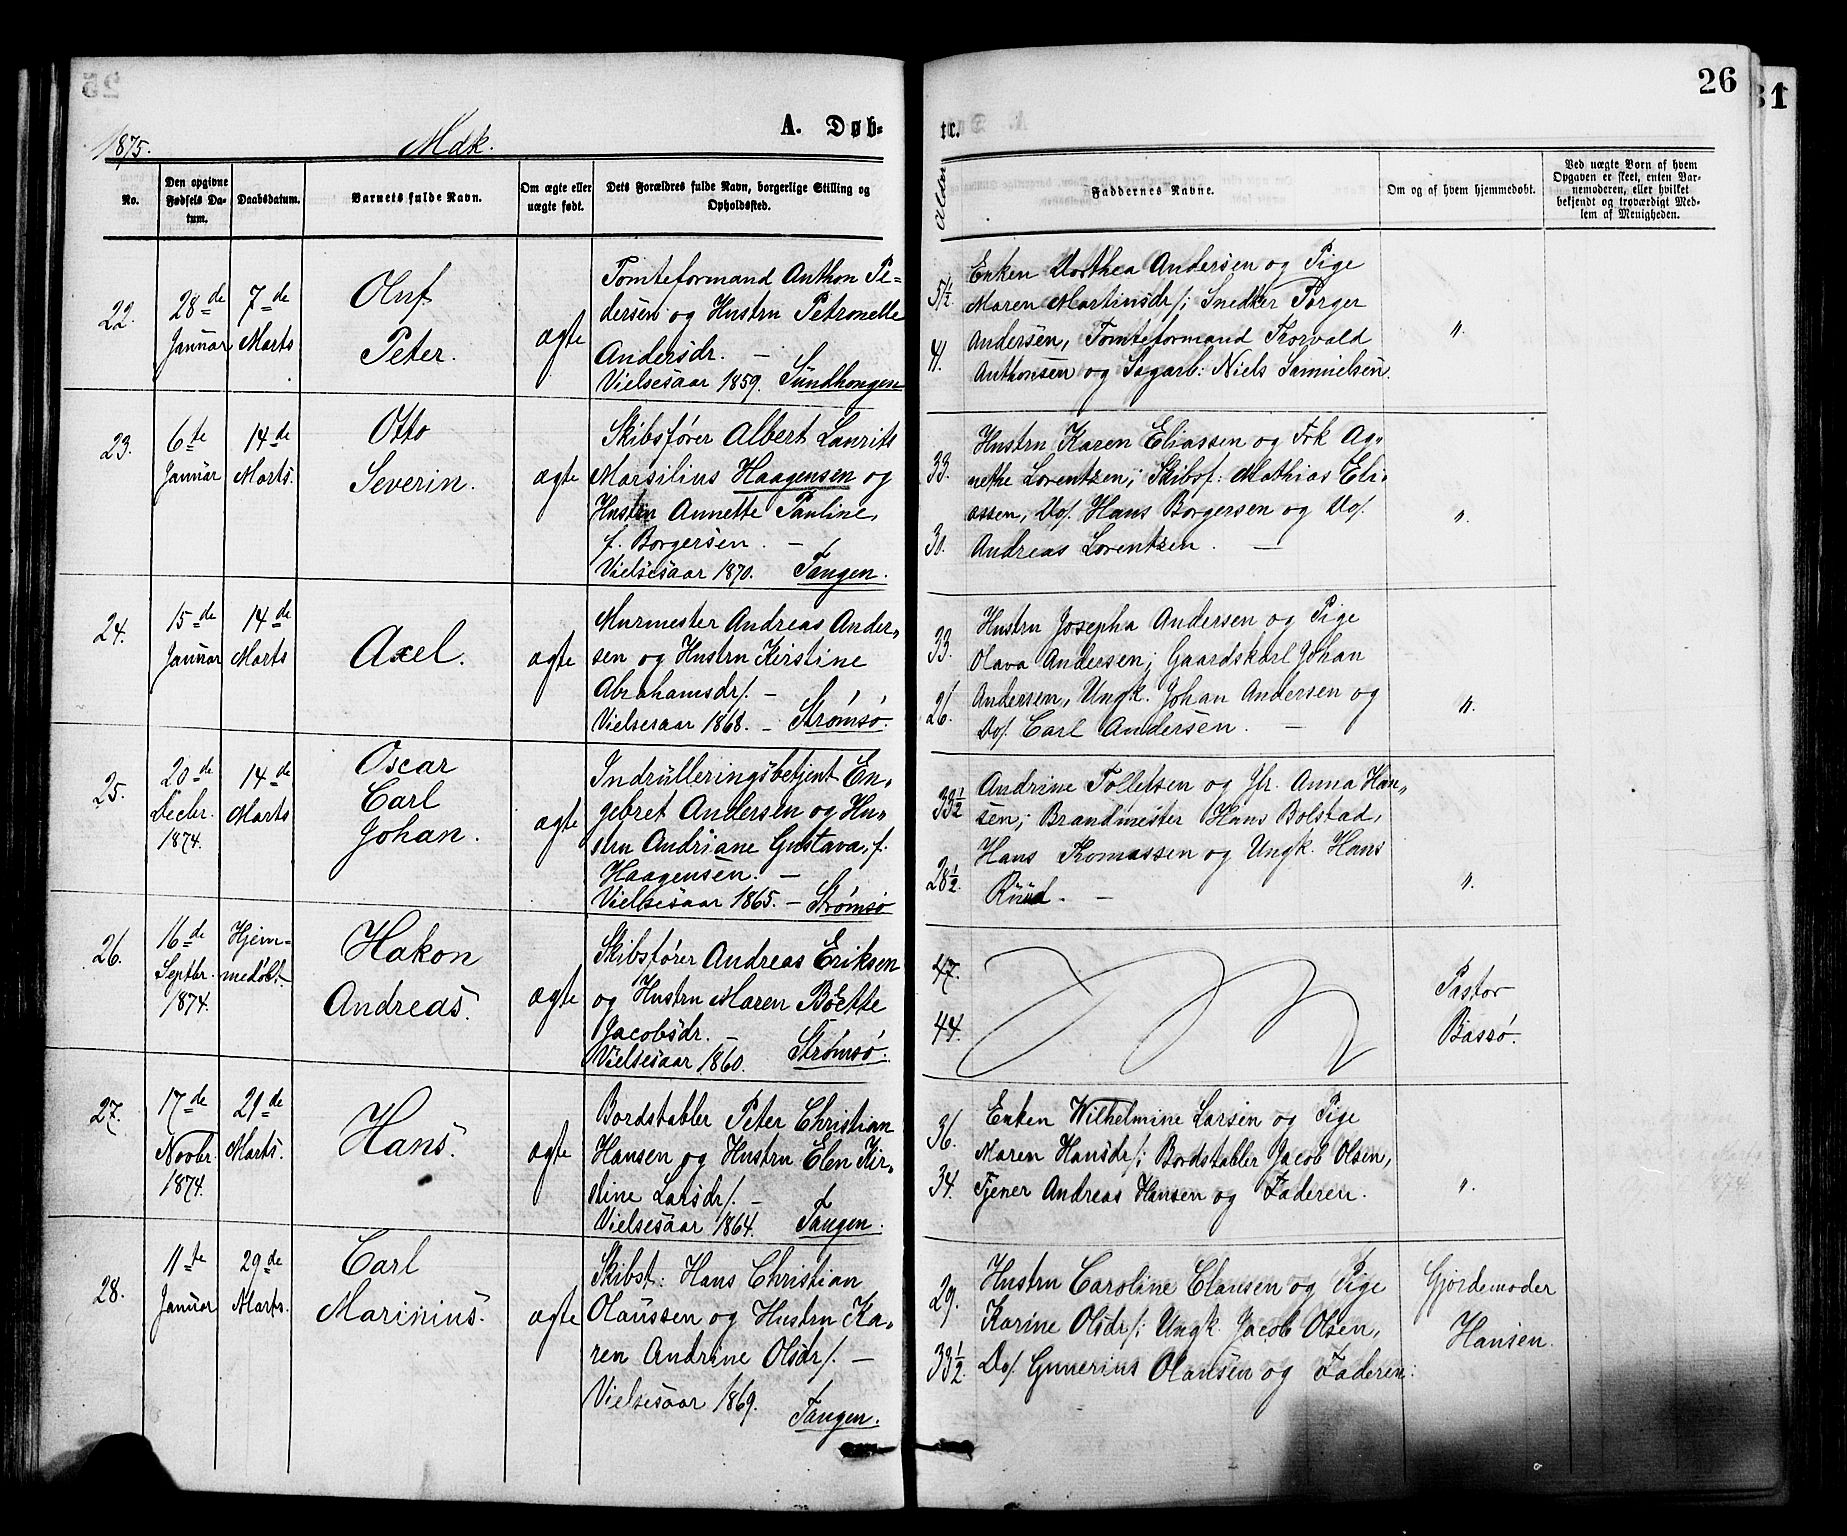 26
31
1875.
Mdk.
A. Døb-
te.
No.
Den opgivne Fødsels Datum.
Daabsdatum.
Barnets fulde Navn.
Om ægte eller uægte født.
Dets Forældres fulde Navn, borgerlige Stilling og Opholdssted.
Alder
Faddernes Navne.
Om og af hvem hjemmedøbt.
Ved uægte Børn af hvem Opgaven er skeet, enten Barnemoderen, eller hvilket bekjendt og troværdigt Medlem af Menigheden.
22.
28de Januar
7de Marts
Oluf
Peter.
ægte
Tomteformand Anthon Pe-
dersen og Hustru Petronelle
Andersdr. —
Vielsesaar 1859. Sundhougen
51½
41.
Enken Dorthea Andersen og Pige
Maren Martinsdr/; Snedker Torger
Andersen, Tomteformand Thorvald
Anthonsen og Sagarb: Niels Samuelsen.
"
23.
6te Januar
14de Marts.
Otto
Severin.
ægte
Skibsfører Albert Laurits
Marsilius Haagensen og
Hustru Annette Pauline,
f. Borgersen. —
Vielsesaar 1870. Tangen.
33.
30.
Hustru Karen Eliassen og Frk Ag-
nethe Lorentzen; Skibsf: Mathias Eli-
assen, Do/. Hans Borgersen og Do/.
Andreas Lorentzen. —
"
24.
15de Januar
14de Marts
Axel.
ægte
Murmester Andreas Ander-
sen og Hustru Kirstine
Abrahamsdr/. —
Vielsesaar 1868. — Strømsø.
33.
26.
Hustru Josepha Andersen og Pige
Olava Andersen; Gaardskarl Johan
Andersen, Ungk. Johan Andersen og
Do/. Carl Andersen. —
"
25.
20de Decbr. 1874.
14de Marts
Oscar
Carl
Johan.
ægte
Indrulleringsbetjent En-
gebret Andersen og Hu-
stru Andriane Gustava, f.
Haagensen. —
Vielsesaar 1865. — Strømsø
33½
28½.
Andrine Tollefsen og Jfr. Anna Han-
sen; Brandmester Hans Bolstad,
Hans Thomassen og Ungk. Hans
Ruud. —
"
26.
16de Septbr. 1874.
Hjem-
medøbt
Hakon
Andreas.
ægte
Skibsfører Andreas Eriksen
og Hustru Maren Bøette
Jacobsdr. —
Vielsesaar 1860. Strømsø.
47.
44.
Pastor
Bassø.
27.
17de Novbr. 1874.
29de Marts.
Hans.
ægte
Bordstabler Peter Christian
Hansen og Hustru Elen Kir-
stine Larsdr/. —
Vielsesaar 1864. Tangen.
36.
34.
Enken Wilhelmine Larsen og Pige
Maren Hansdr/; Bordstabler Jacob Olsen,
Tjener Andreas Hansen og Faderen.
"
28.
11te Januar
29de Marts.
Carl
Marinius.
ægte
Skibst: Hans Christian
Olaussen og Hustru Ka-
ren Andrine Olsdr/. —
Vielsesaar 1869.
Tangen.
29.
33½.
Hustru Caroline Clausen og Pige
Karine Olsdr/; Ungk. Jacob Olsen,
Do/. Gunerius Olausen og Faderen.
Gjordemoder
Hansen.